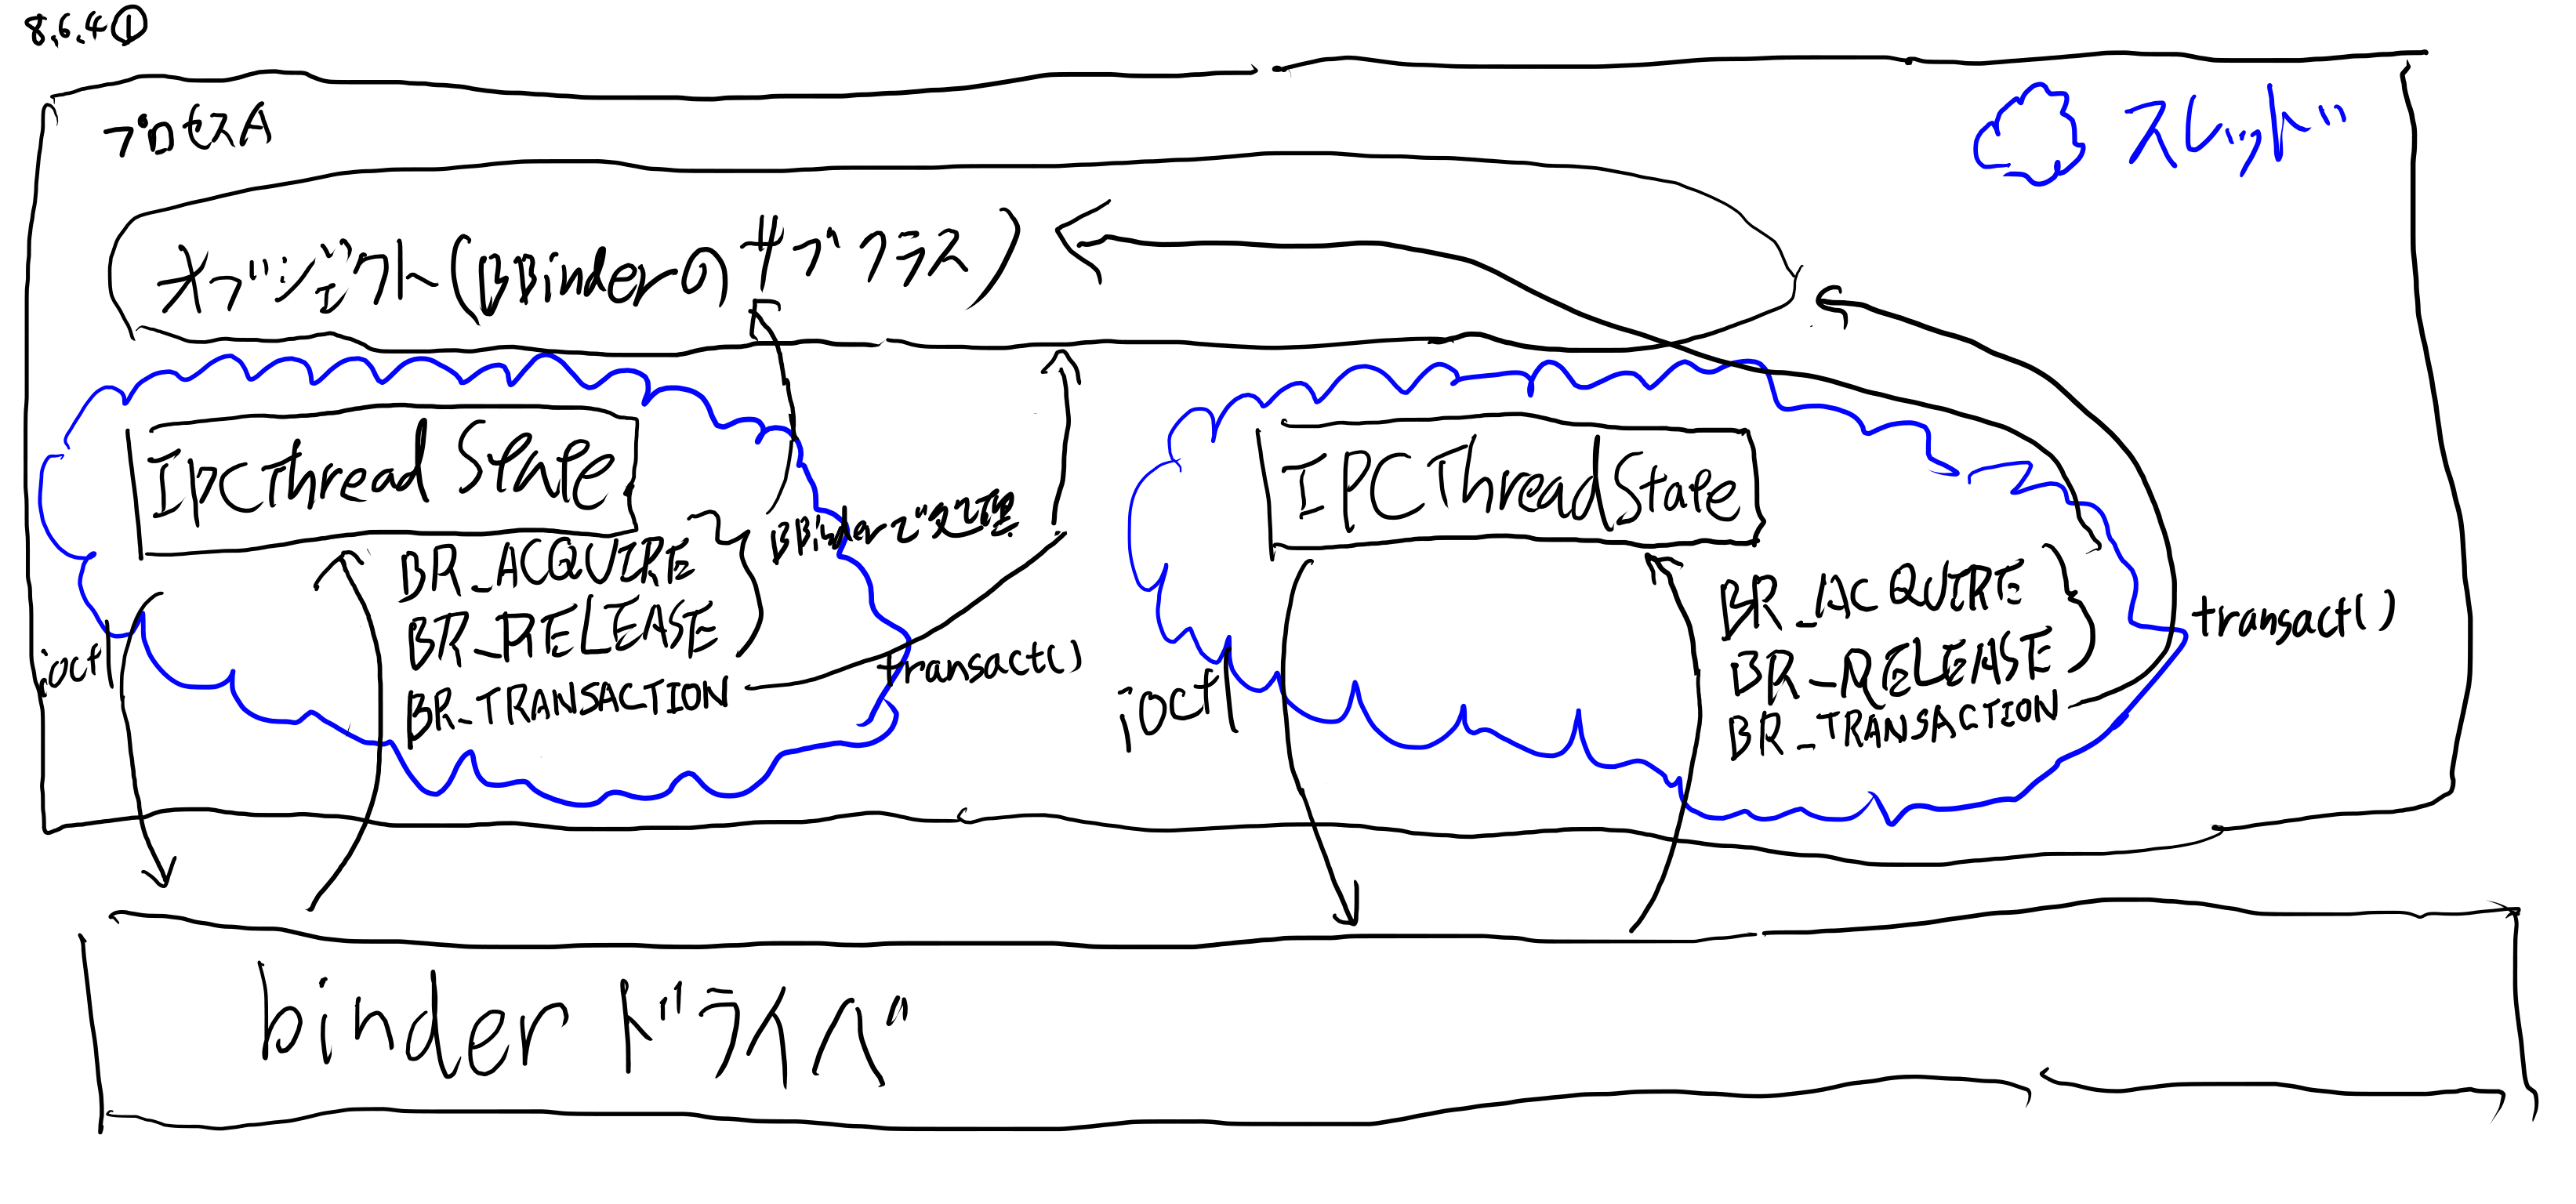 8.6.4①
プロセスA
スレッド
オブジェクト(BBinderのサブクラス)
IPCThreadState
BBinderで処理
BR_ACQUIRE
BR_RELEASE
BR_TRANSACTION
transact()
ioctl
IPCThreadState
BR_ACQUIRE
BR_RELEASE
BR_TRANSACTION
transact()
ioctl
binderドライバ